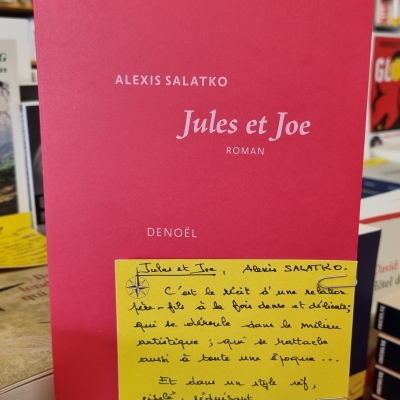 ALEXIS SALATKO
Jules et Joe
ROMAN
DENOËL
Jules et Joe, Alexis SALATKO.
C'est le récit d'une relation
père-fils à la fois dense et délicate;
qui se déroule dans le milieu
artistique; qui se rattache
aussi à toute une époque...
Et dans un style vif,
ciselé, séduisant
GLO
David
Hôtel d